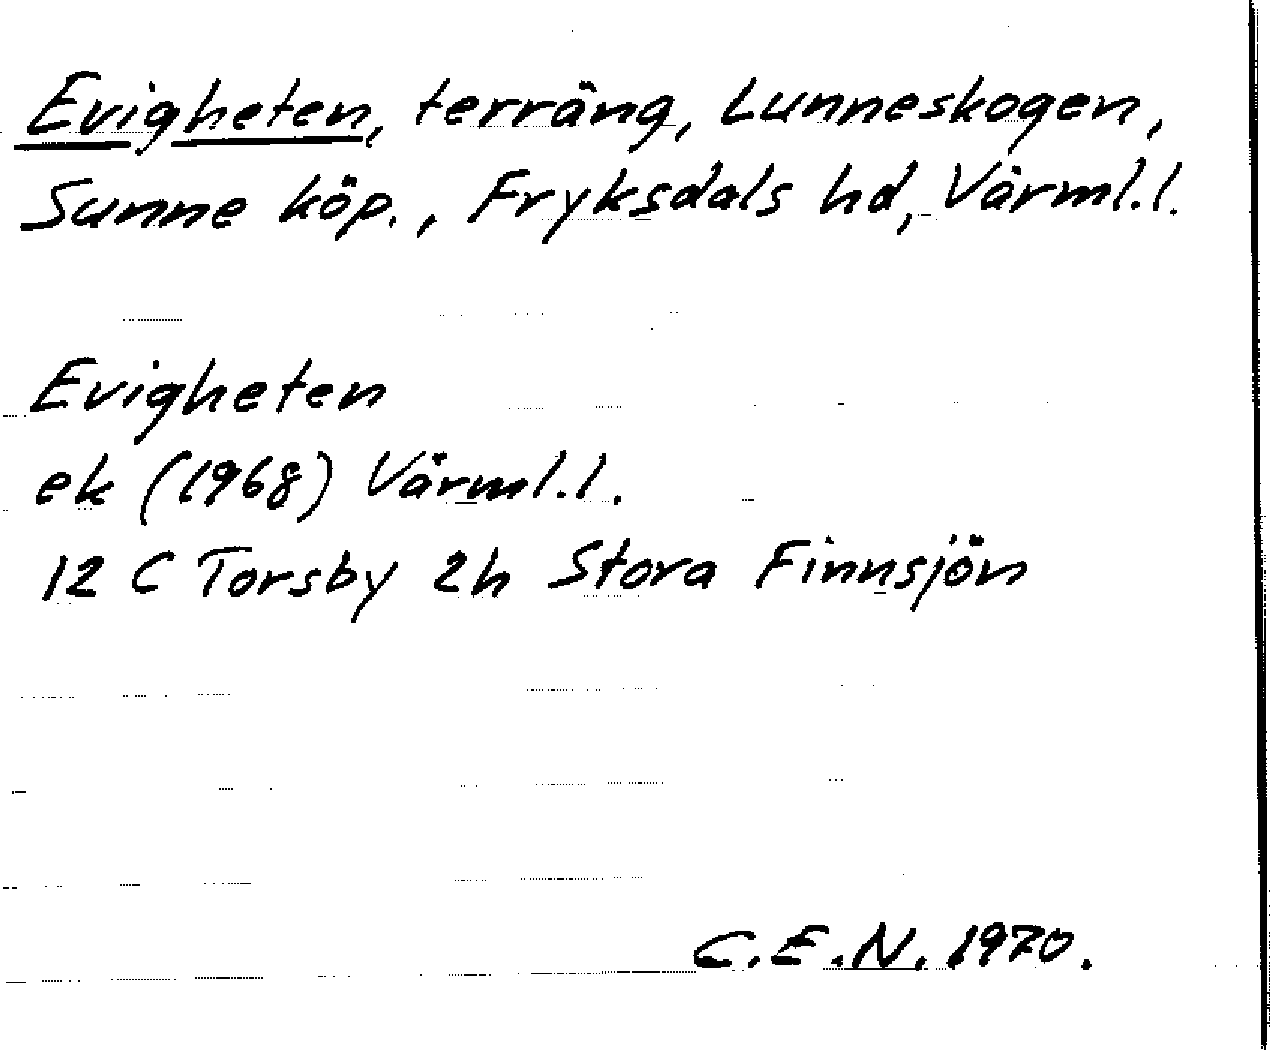 Evigheten, terräng, Lunneskogen,
Sunne köp., Fryksdals hd, Värml.l.
Evigheten
ek (1968) Värml.l.
12 C Torsby 2h Stora Finnsjön
C.E.N. 1970.